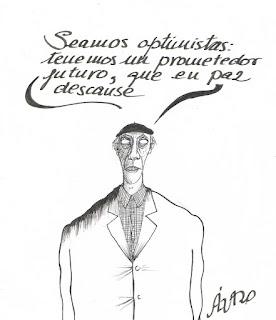 Seamos optimistas:
tenemos un prometedor
futuro, que en paz
descanse
ÁLVARO